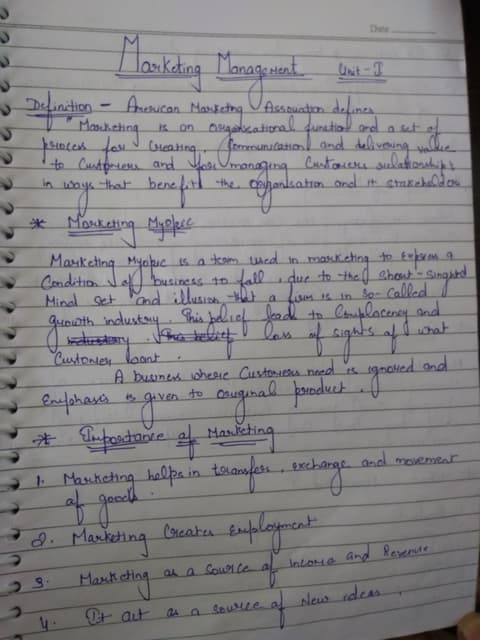 Date
Marketing Management Unit-I
Definition - American Marketing Assouation defines
"Marketing is an organisational function and a set of
process for creating, Communication and delivering value
to Customers and for managing Customers relationships
in ways that benefit the organisation and it stakeholders
* Marketing Myopic
Marketing Myopic is a team used in marketing to Express a
Condition of business to fall, due to the short-singted
Mind set and illusion that a firm is in so-Called
growth industry. This belief leads to Complacency and
industry. This belief loss of sights of what
Customer want.
A business where Customers need is ignored and
Emphasis is given to original product.
* Importance of Marketing
1. Marketing helps in transfer, exchange and movement
of goods.
2. Marketing Creates Employment
3. Marketing as a source of income and Revenue
4. It act as a source of New ideas.